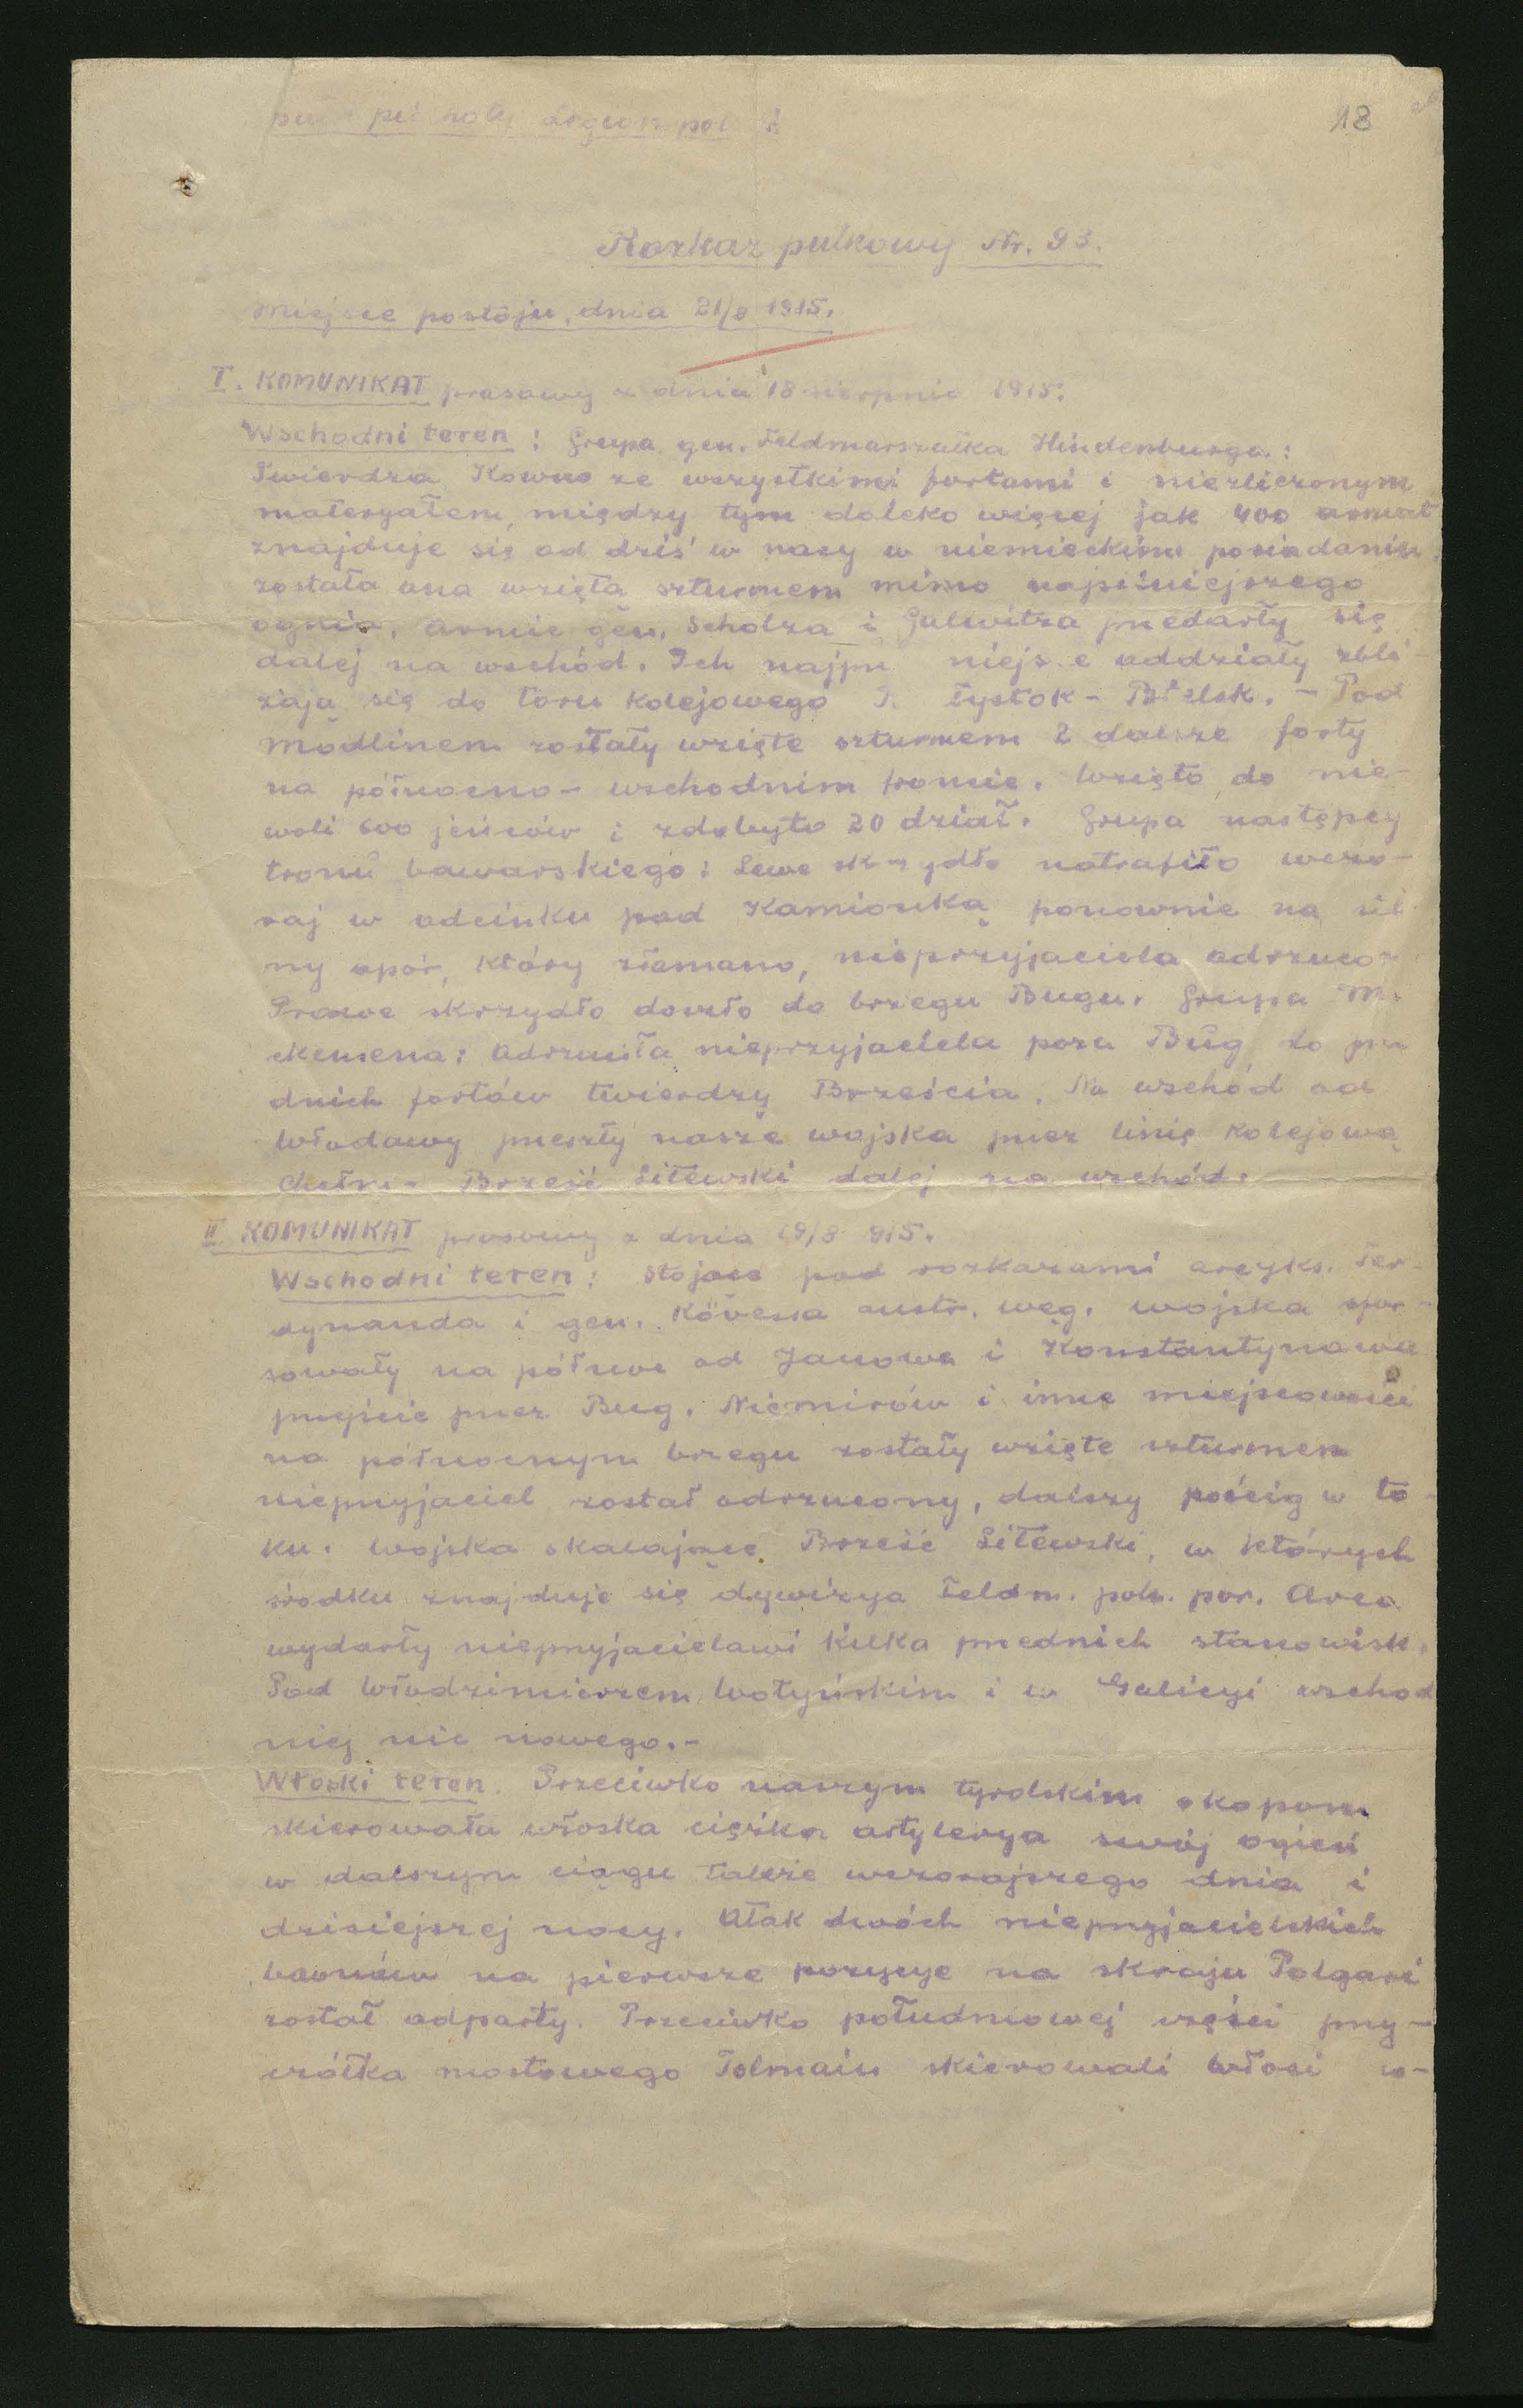 18
Rozkaz pułkowy Nr. 93.
Miejsce postoju, dnia 21/8 1915.
I. KOMUNIKAT prasowy z dnia 18 sierpnia 1915:
Wschodni teren: Grupa gen. Feldmarszałka Hindenburga:
Twierdza Kowno ze wszystkimi fortami i niezliczonym
materyałem, między tym daleko więcej jak 400 armat
znajduje się od dziś w nocy w niemieckim posiadaniu.
została ona wzięta szturmem mimo najsilniejszego
ognia. Armie gen. Scholza i Galwitza przedarły się
dalej na wschód. Ich oddziały zbli-
żają się do toru kolejowego - Bielsk. - Pod
Modlinem zostały wzięte szturmem 2 dalsze forty
na północno-wschodnim froncie. Wzięto do nie-
woli 600 jeńców i zdobyto 20 dział. Grupa następcy
tronu bawarskiego: Lewe skrzydło natrafiło wczo-
raj w odcinku pod Kamionką ponownie na sil-
ny opór, który złamano, nieprzyjaciela odrzuco-
Prawe skrzydło doszło do brzegu Bugu. Grupa M.
ckensena: Odrzuciła nieprzyjaciela poza Bug do prz
dnich fortów twierdzy Brześcia. Na wschód od
Włodawy przeszły nasze wojska przez linię kolejową
Chełm - Brześć Litewski dalej na wschód.
II. KOMUNIKAT prasowy z dnia 19/8 915.
Wschodni teren: Stojące pod rozkazami arcyks. Fer-
dynanda i gen. Kövessa austr. węg. wojska sfor-
sowały na północ od Janowa i Konstantynowa
przejście przez Bug. Niemirów i inne miejscowości
na północnym brzegu zostały wzięte szturmem
nieprzyjaciel został odrzucony, dalszy pościg w to-
ku. Wojska okalające Brześć Litewski, w których
środku znajduje się dywizya Feldm. pol. por. Arca
wydarły nieprzyjacielowi kilka przednich stanowisk.
Pod Włodzimierzem Wołyńskim i w Galicyi wschod
niej nic nowego.-
Włoski teren. Przeciwko naszym tyrolskim okopom
skierowała włoska ciężka artylerya swój ogień
w dalszym ciągu także wczorajszego dnia i
dzisiejszej nocy. Atak dwóch nieprzyjacielskich
baonów na pierwsze pozycye na skraju Folgari
został odparty. Przeciwko południowej części przy-
czółka mostowego Tolmain skierowali Włosi w-